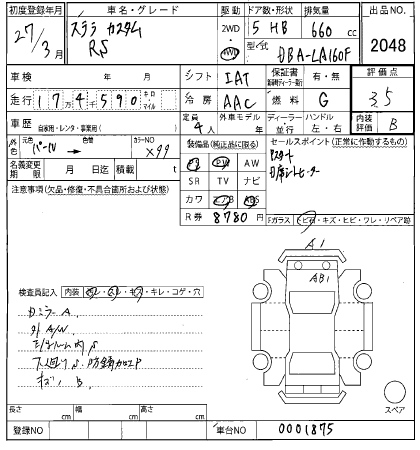 初度登録年月 車名・グレード 駆動 ドア数・形状 排気量 出品NO.
27/3月 ステラ カスタム RS 2WD 4WD 5 HB 660 cc 2048
型/式 DBA-LA160F
車検 年 月 シフト IAT 保証書 有・無 評価点
走行 174,590 キロ マイル 冷房 AAC 燃料 G 3.5
車歴 自家用・レンタ・事業用( ) 定員 4人 外車モデル 年 ディーラー 並行 ハンドル 左・右 内装評価 B
外色 元色 パール 色替 カラーNO X99 装備品(純正品に限る) セールスポイント(正常に作動するもの)
PS PW AW Pスタート
名義変更期限 月 日迄 積載 t SR TV ナビ シートヒーター
注意事項(欠品・修復・不具合箇所および状態) カワ エアB ABS
R券 8780円 Fガラス トビ石・キズ・ヒビ・ワレ・リペア跡
A1
AB1
検査員記入 内装 ヨゴレ・スレ・キズ・キレ・コゲ・穴
カミラーA
外A/W
キズ B
スペア
長さ cm 幅 cm 高さ cm
登録NO 車台NO 0001875